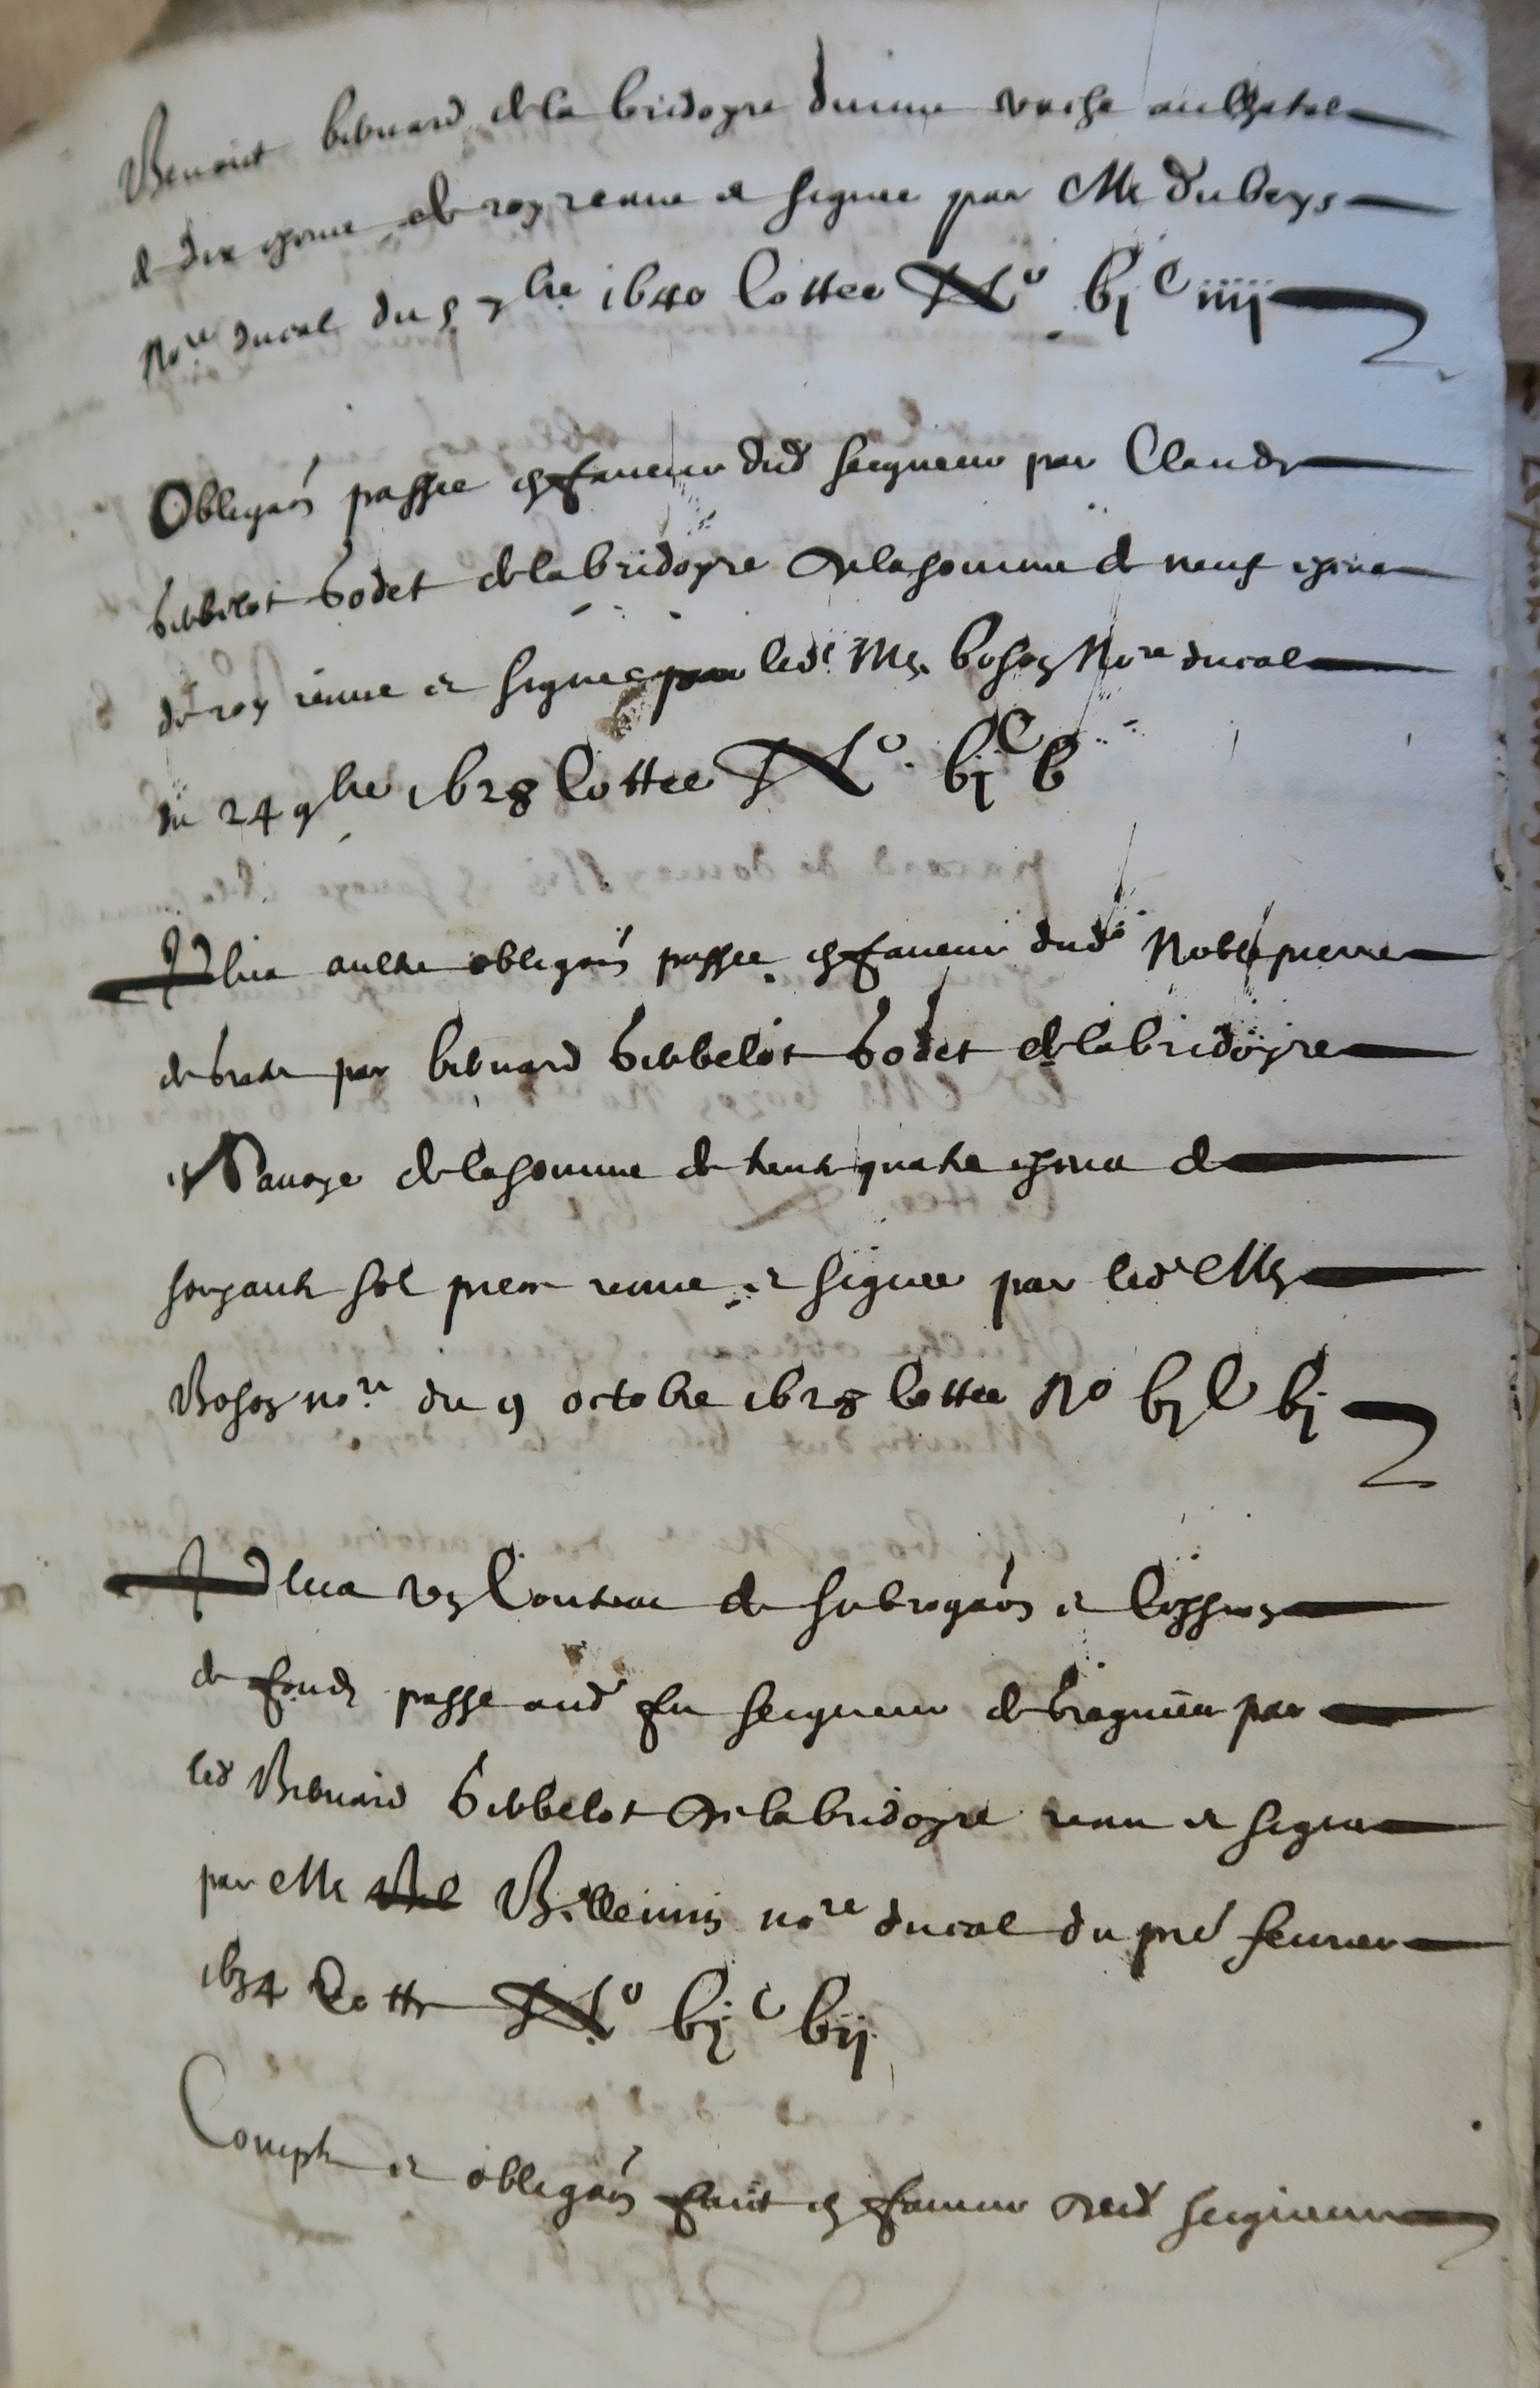 Benoist bernard de la bridoyre d'une vache au chatal
de dix de roy receue et signee par Me dubeys
nore ducal du 5 7bre 1640 Cottee No bjc iiij
Obligaon passee en faveur dud seigneur par Claude
bodet de la bridoyre de la somme de neuf
de roy receue et signee par led Me boson Nore ducal
du 24 9bre 1628 Cottee No bjc b
Plus aultre obligaon passee en faveur dud Noble pierre
de par bernard bodet de la bridoyre
en Savoye de la somme de trente quatre de
soyxante sol piece receue et signee par led Me
Boson nore du 9 octobre 1628 Cottee No bjc bj
Plus ung Contract de subrogaon et Cession
de fondz passe aud feu seigneur de par
led Bernard de la bridoyre receu et signe
par Me nore ducal du pre febvrier
1634 Cotte No bjc bij
Compte et obligaon faict en faveur dud seigneur